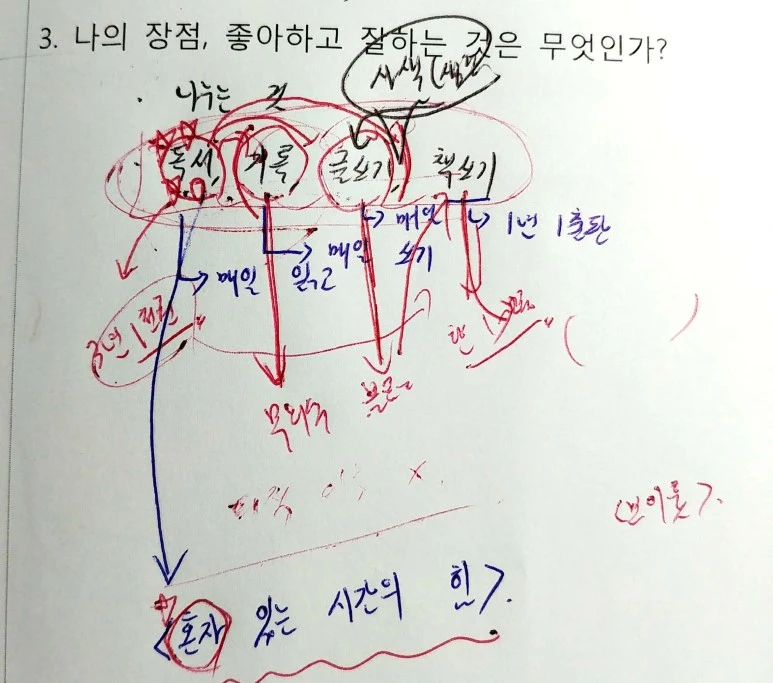 3. 나의 장점, 좋아하고 잘하는 것은 무엇인가?
사색
· 나누는 것
독서, 기록, 글쓰기, 책쓰기
매일 쓰기
1년 1출판
매일 읽고 매일
3년 1천권
한 1
블로그
X
<혼자 있는 시간의 힘>.